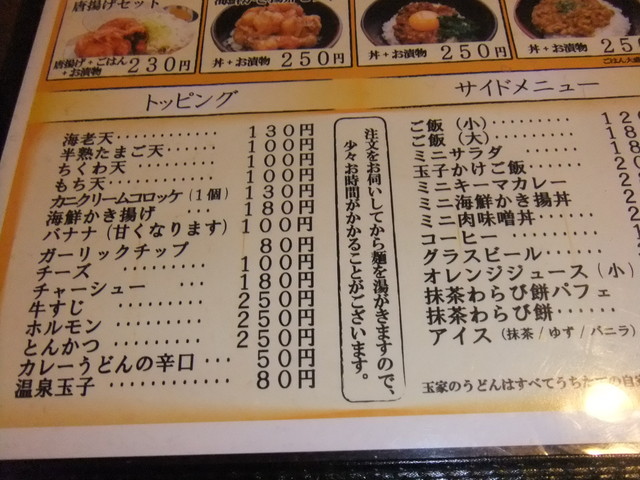 唐揚げセット
唐揚げ+ごはん
+お漬物 230円
丼+お漬物 250円
丼+お漬物 250円
丼+お漬物 25
トッピング
海老天………… 130円
半熟たまご天…… 100円
ちくわ天………… 100円
もち天………… 100円
カニクリームコロッケ(1個) 130円
海鮮かき揚げ … 180円
バナナ(甘くなります) 100円
ガーリックチップ 80円
チーズ ……… 100円
チャーシュー … 180円
牛すじ ……… 250円
ホルモン ……… 250円
とんかつ ……… 250円
カレーうどんの辛口 … 50円
温泉玉子 ………… 80円
注文をお伺いしてから麺を湯がきますので、
少々お時間がかかることがございます。
サイドメニュー
ご飯(小)………
ご飯(大)………
ミニサラダ………
玉子かけご飯……
ミニキーマカレー
ミニ海鮮かき揚丼
ミニ肉味噌丼……
コーヒー…………
グラスビール……
オレンジジュース(小)
抹茶わらび餅パフェ
抹茶わらび餅……
アイス(抹茶/ゆず/バニラ)
玉家のうどんはすべてうち